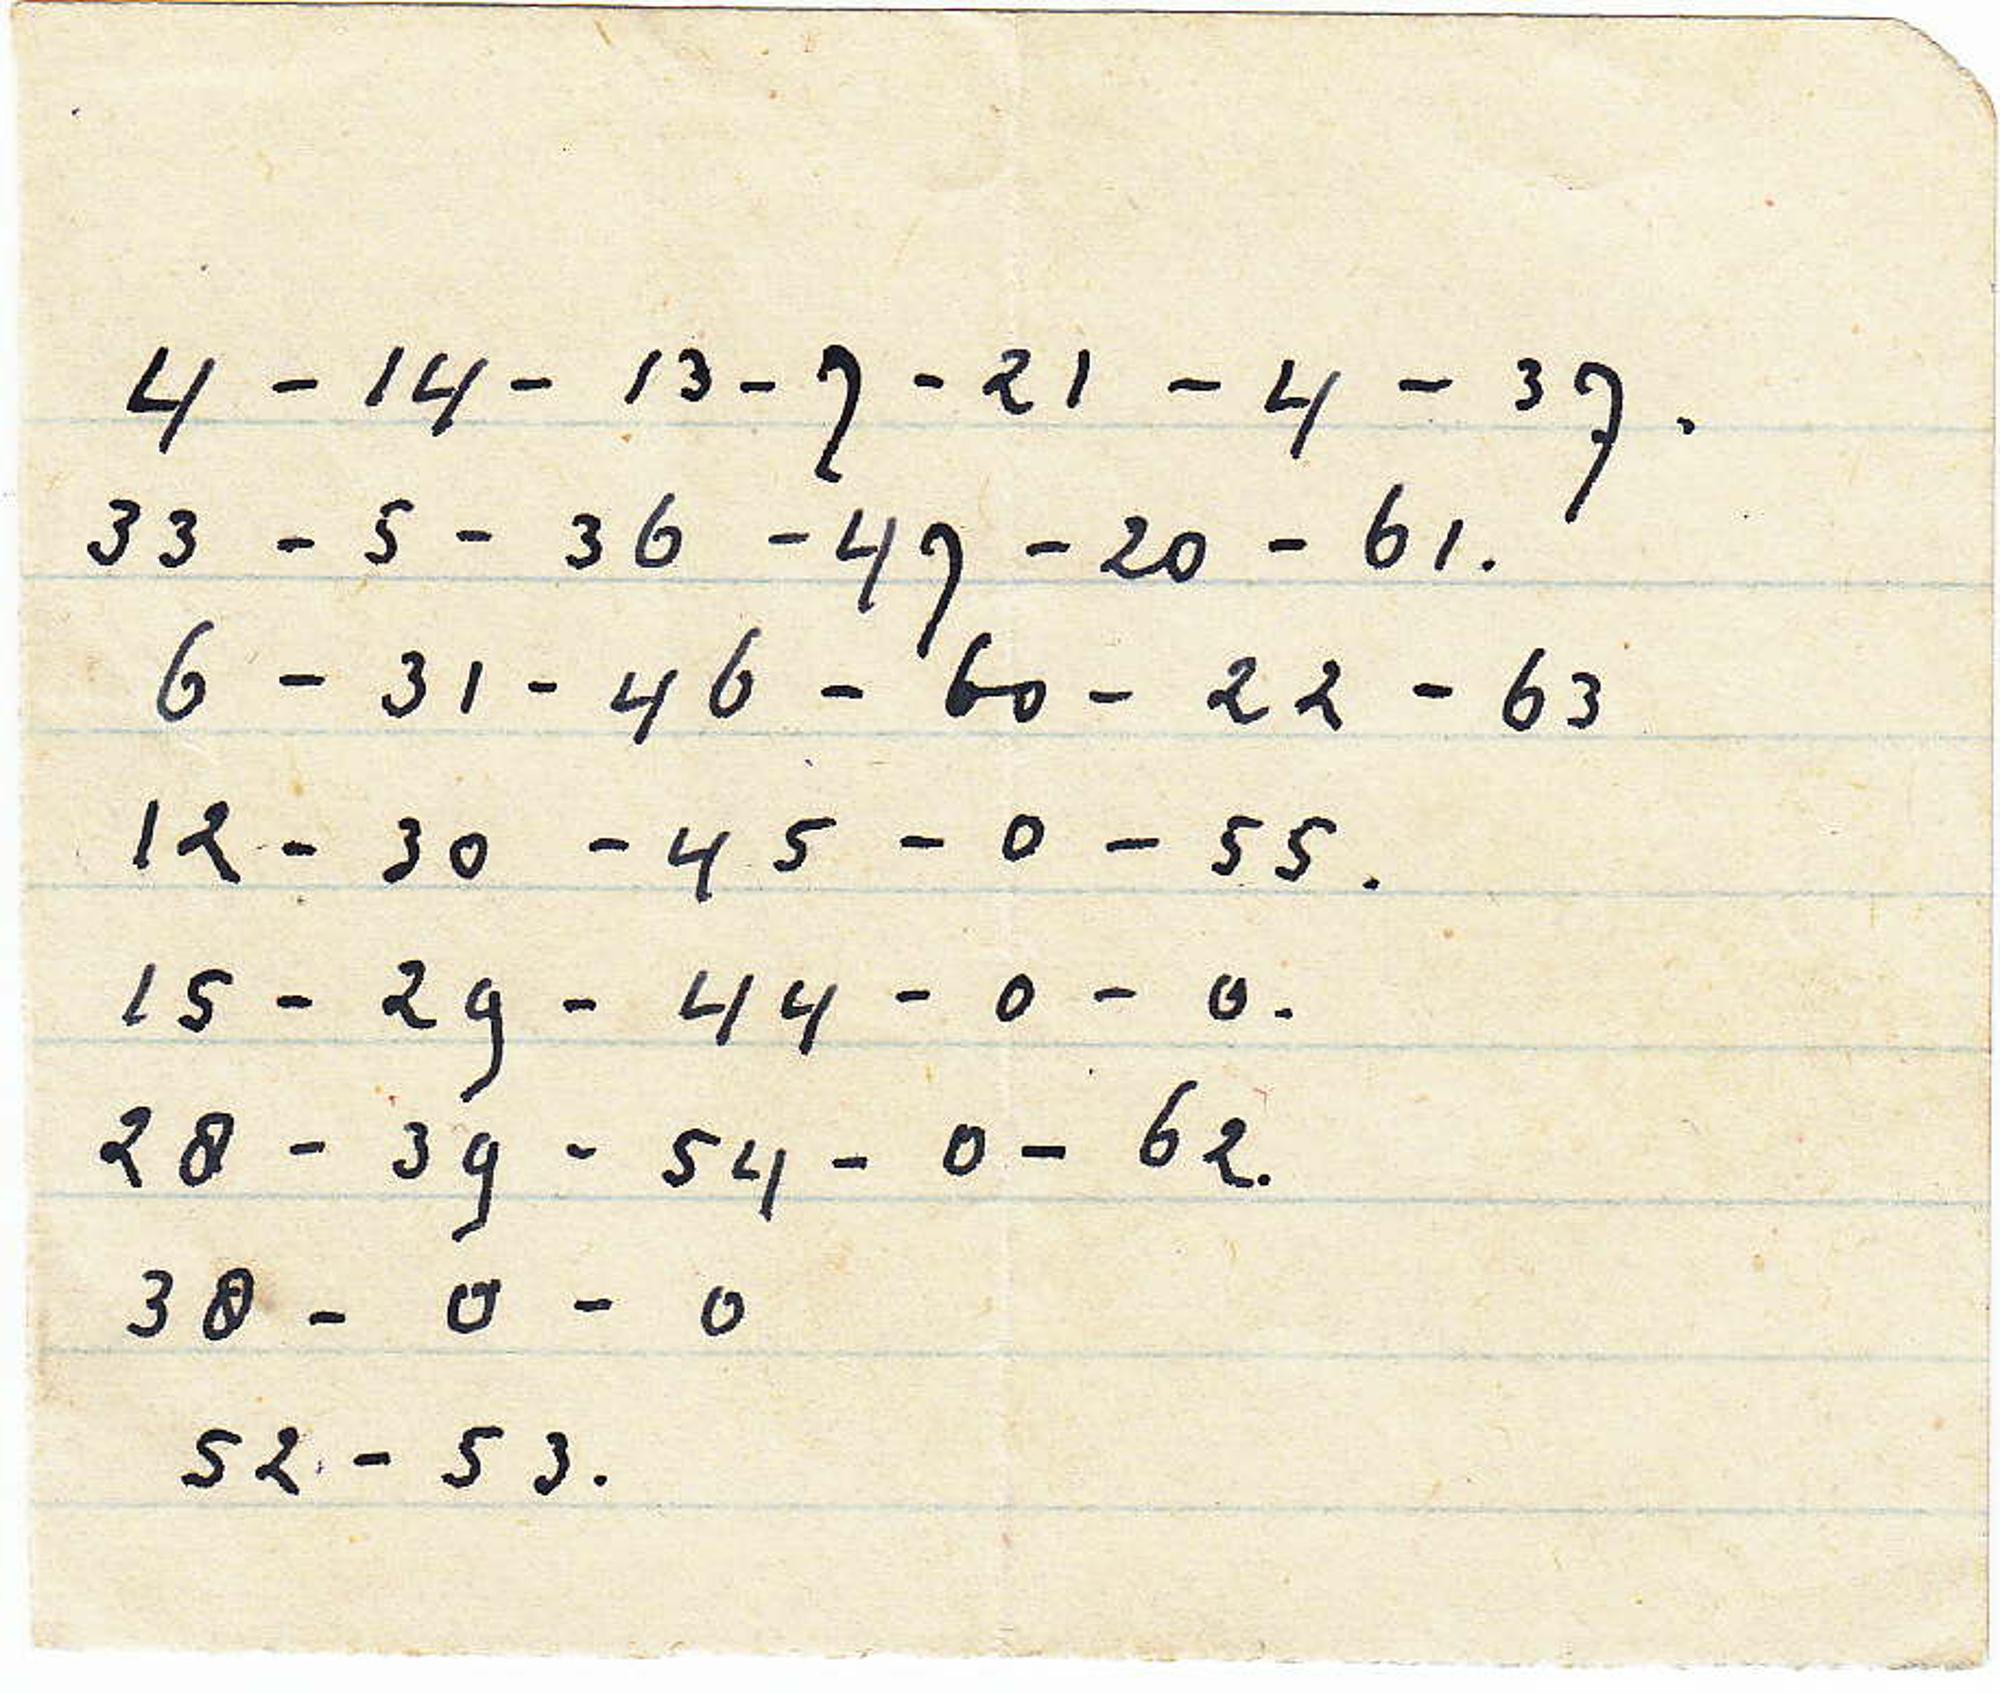 4 - 14 - 13 - 7 - 21 - 4 - 37.
33 - 5 - 36 - 47 - 20 - 61.
6 - 31 - 46 - 60 - 22 - 63
12 - 30 - 45 - 0 - 55.
15 - 29 - 44 - 0 - 0.
28 - 39 - 54 - 0 - 62.
38 - 0 - 0
52 - 53.